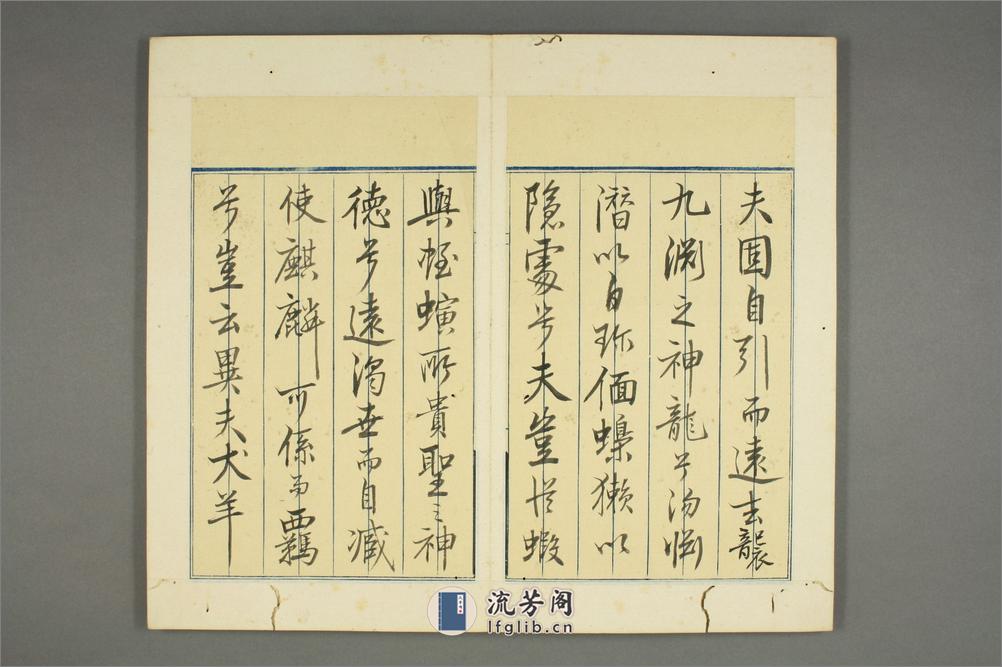 夫固自引而遠去襲
九淵之神龍兮沕淵
潛以自珍偭蟂獺以
隱處兮夫豈從蝦
與蛭螾所貴聖之神
德兮遠濁世而自藏
使麒麟可係而羈
兮豈云異夫犬羊
流芳阁
lfglib.cn